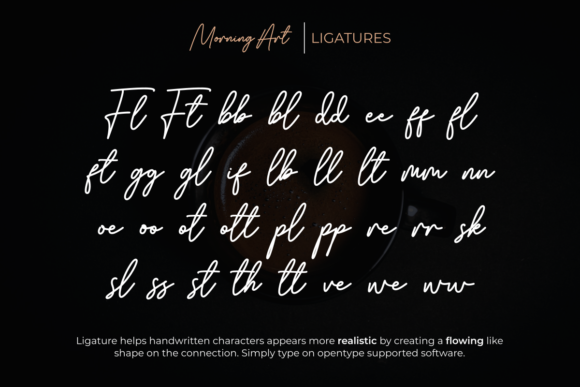 Morning Art | LIGATURES
Fl Ft bb bl dd ee ff fl
ft gg gl if lb ll lt mm nn
oe oo ot ott pl pp re rr sk
sl ss st th tt ve we ww
Ligature helps handwritten characters appears more realistic by creating a flowing like
shape on the connection. Simply type on opentype supported software.